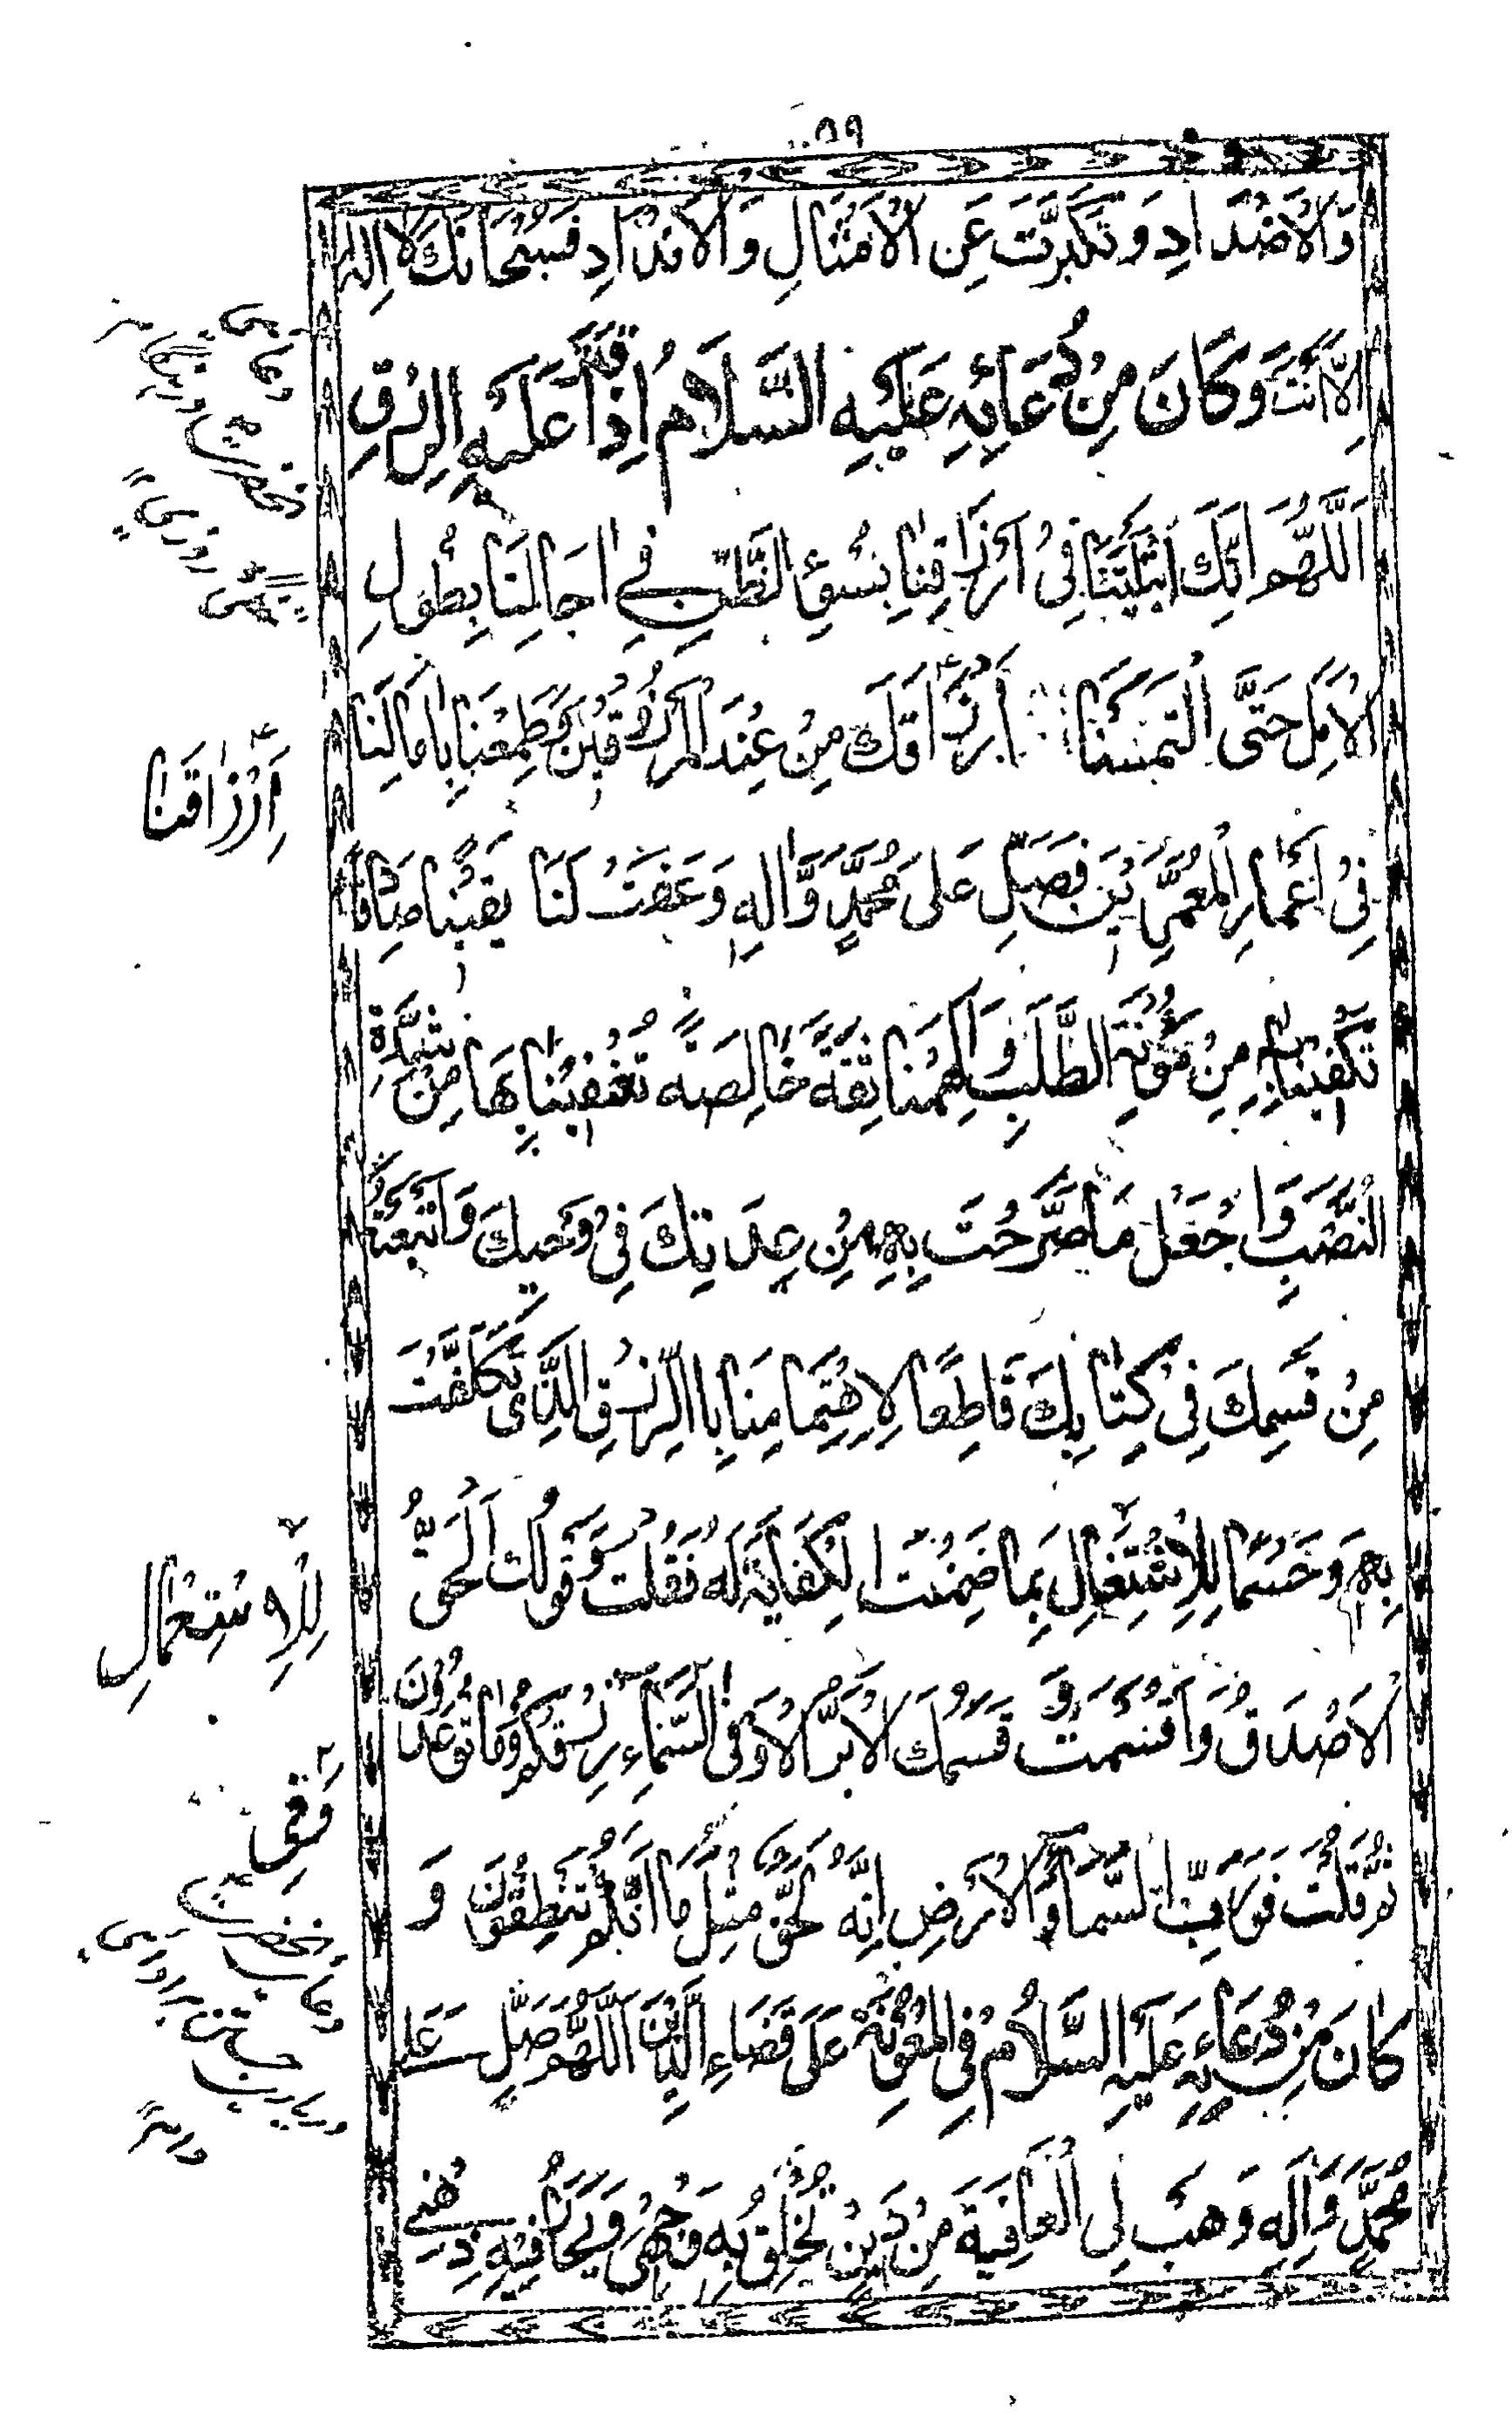 ٥٩
وَالْاَضْدَادِ وَتَكَبَّرْتَ عَنِ الْاَمْثَالِ وَالْاَنْدَادِ فَسُبْحَانَكَ لَا اِلٰهَ
اِلَّا اَنْتَ وَكَانَ مِنْ دُعَائِهِ عَلَيْهِ السَّلَامُ اِذَا قُتِّرَ عَلَيْهِ الرِّزْقُ
اَللّٰهُمَّ اِنَّكَ ابْتَلَيْتَنَا فِیْ اَرْزَاقِنَا بِسُوْءِ الظَّنِّ فِیْ اٰجَالِنَا بِطُوْلِ
الْاَمَلِ حَتَّى الْتَمَسْنَا اَرْزَاقَكَ مِنْ عِنْدِ الْمَرْزُوْقِيْنَ وَطَمِعْنَا بِاٰمَالِنَا
فِیْ اَعْمَارِ الْمُعَمَّرِيْنَ فَصَلِّ عَلٰى مُحَمَّدٍ وَّاٰلِهِ وَ لَنَا يَقِيْنًا صَادِقًا
تَكْفِيْنَا بِهِ مِنْ مَؤُنَةِ الطَّلَبِ وَاَلْهِمْنَا ثِقَةً خَالِصَةً تُعْفِيْنَا بِهَا مِنْ شِدَّةِ
النَّصَبِ وَاجْعَلْ مَا صَرَّحْتَ بِهِ مِنْ عِدَتِكَ فِیْ وَحْيِكَ وَاَتْبَعْتَهُ
مِنْ قَسَمِكَ فِیْ كِتَابِكَ قَاطِعًا لِاهْتِمَامِنَا بِالرِّزْقِ الَّذِیْ تَكَفَّلْتَ
بِهِ وَحَسْمًا لِلْاِشْتِغَالِ بِمَا ضَمِنْتَ الْكِفَايَةَ لَهُ فَقُلْتَ وَقَوْلُكَ الْحَقُّ
الْاَصْدَقُ وَاَقْسَمْتَ وَ قَسَمُكَ الْاَبَرُّ الْاَوْفٰى وَفِی السَّمَاءِ رِزْقُكُمْ وَمَا تُوْعَدُوْنَ
ثُمَّ قُلْتَ فَوَرَبِّ السَّمَاءِ وَالْاَرْضِ اِنَّهُ لَحَقٌّ مِثْلَ مَا اَنَّكُمْ تَنْطِقُوْنَ وَ
كَانَ مِنْ دُعَائِهِ عَلَيْهِ السَّلَامُ فِی الْمَعُوْنَةِ عَلٰى قَضَاءِ الدَّيْنِ اَللّٰهُمَّ صَلِّ عَلٰى
مُحَمَّدٍ وَاٰلِهِ وَهَبْ لِیَ الْعَافِيَةَ مِنْ دَيْنٍ تُخْلِقُ بِهِ وَجْهِیْ وَيَحَارُ فِيْهِ ذِهْنِیْ
اَرْزَاقَنَا
لِلْاِسْتِعْمَالِ